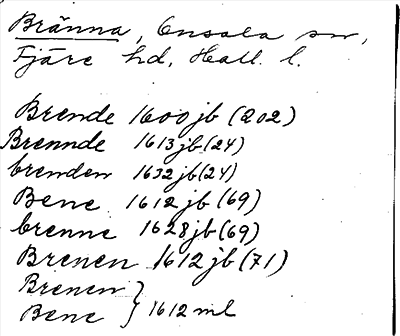 Bränna, Onsala sn,
Fjäre hd, Hall. l.
Brende 1600 jb (202)
Brennde 1613 jb (24)
brenden 1632 jb (24)
Bene 1612 jb (69)
brenne 1628 jb (69)
Brenen 1612 jb (71)
Brenen
Bene } 1612 ml